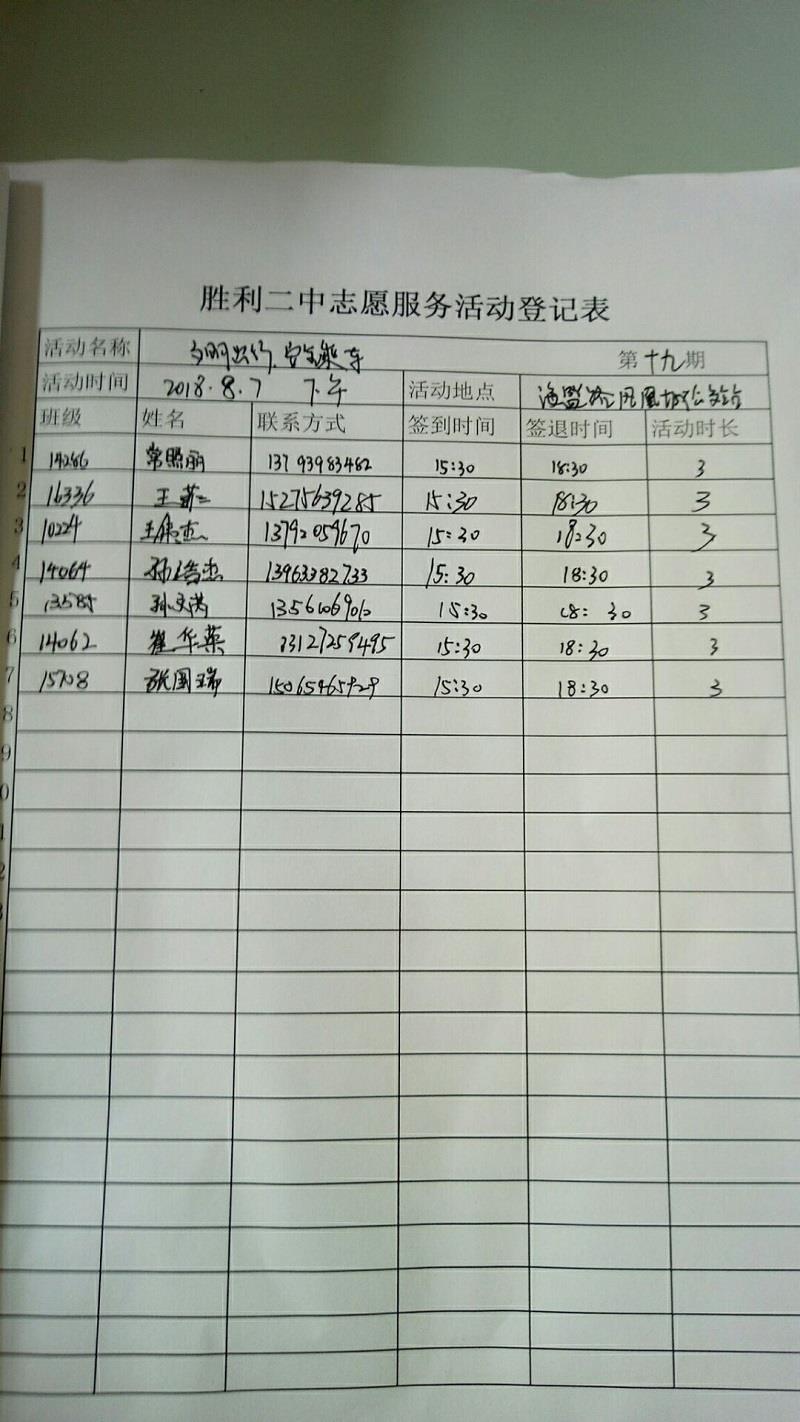 胜利二中志愿服务活动登记表
活动名称 文明出行、安全乘车 第十九期
活动时间 2018.8.7 下午 活动地点 海盐路凤凰城公交站
班级 姓名 联系方式 签到时间 签退时间 活动时长
1 14286 常照丽 13793983482 15:30 18:30 3
2 16336 王 15275639285 15:30 18:30 3
3 10224 王 杰 13792059670 15:30 18:30 3
4 14064 孙浩杰 13963382733 15:30 18:30 3
5 13585 孙文 15:30 18:30 3
6 14062 崔华英 13127259495 15:30 18:30 3
7 15708 张国瑞 15065465929 15:30 18:30 3
8
9
0
1
2
3